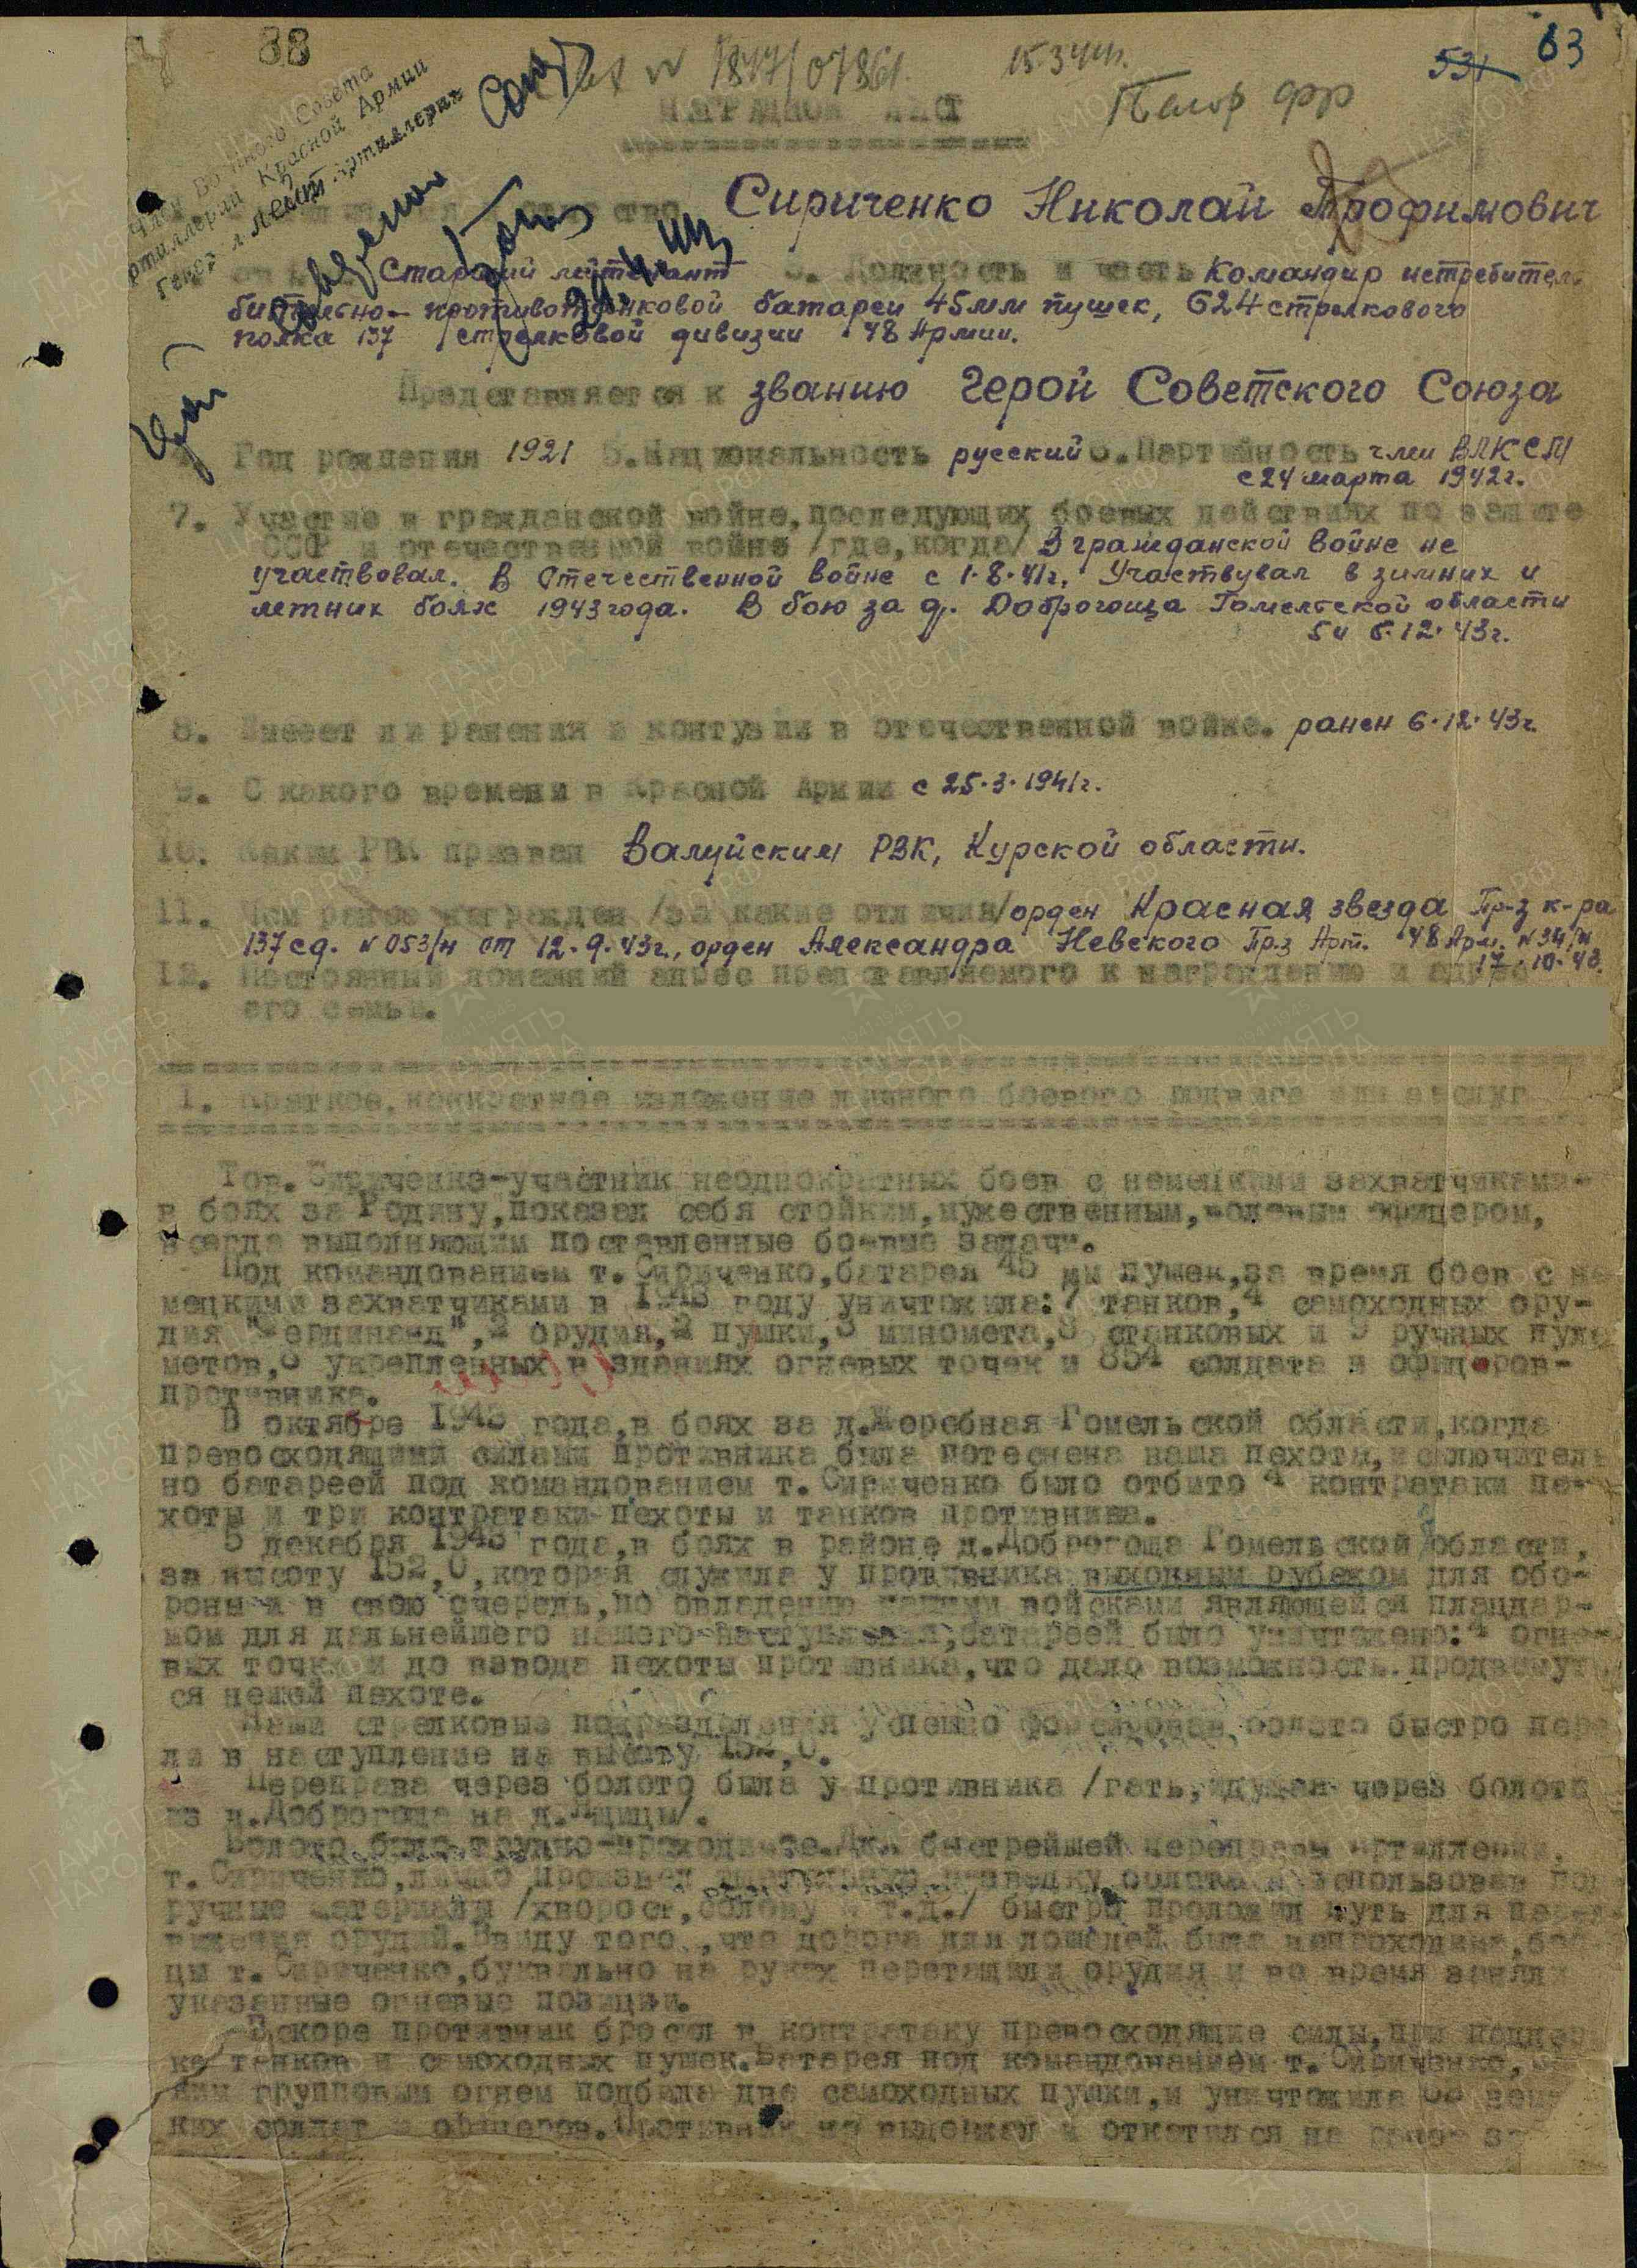 88
1847/07861
531 63
НАГРАДНОЙ ЛИСТ
Член Военного Совета
артиллерии Красной Армии
Сириченко Николай Трофимович
Старший лейтенант 3. Должность и часть Командир истребитель
бительно-противотанковой батареи 45мм пушек, 624 стрелкового
полка 137 стрелковой дивизии 48 Армии.
Представляется к званию Герой Советского Союза
Год рождения 1921 5. Национальность русский 6. Партийность член ВЛКСМ
с 24 марта 1942г.
7. Участие в гражданской войне, последующих боевых действиях по защите
СССР и отечественной войне /где, когда/ В гражданской войне не
участвовал. В Отечественной войне с 1.8.41г. Участвувал в зимних и
летних боях 1943 года. В бою за д. Доброгоща Гомельской области
5 и 6.12.43г.
8. Имеет ли ранения и контузии в отечественной войне. ранен 6.12.43г.
9. С какого времени в Красной Армии с 25.3.1941г.
10. Каким РВК призван Валуйским РВК, Курской области.
11. Чем ранее награжден /за какие отличия/ орден Красная звезда Пр-з к-ра
137 сд. №053/н от 12.9.43г., орден Александра Невского Пр-з Арт. 48 Арм. №34/н
17.10.43.
12. Постоянный домашний адрес представляемого к награждению и адрес
его семьи.
1. Краткое, конкретное изложение личного боевого подвига или заслуг
Тов. Сириченко-участник неоднократных боев с немецкими захватчиками-
в боях за Родину, показал себя стойким, мужественным, волевым офицером,
всегда выполняющим поставленные боевые задачи.
Под командованием т. Сириченко, батарея 45 мм пушек, за время боев с не
мецкими захватчиками в 1943 году уничтожила: 7 танков, 4 самоходных ору-
дия "Фердинанд", 2 орудия, 2 пушки, 3 миномета, 8 станковых и 9 ручных пуле
метов, 8 укрепленных в зданиях огневых точек и 854 солдата и офицеров-
противника.
В октябре 1943 года, в боях за д. Жеребная Гомельской области, когда
превосходящими силами противника была потеснена наша пехота, исключитель
но батареей под командованием т. Сириченко было отбито 4 контратаки пе-
хоты и три контратаки пехоты и танков противника.
5 декабря 1943 года, в боях в районе д. Доброгоща Гомельской области,
за высоту 152,0, которая служила у противника выгодным рубежом для обо-
роны и в свою очередь, по овладению нашими войсками являющейся плацдар-
мом для дальнейшего нашего наступления, батареей было уничтожено: 4 огне-
вых точки и до взвода пехоты противника, что дало возможность продвинуть
ся нашей пехоте.
Наши стрелковые подразделения успешно форсировав болото быстро пере
ли в наступление на высоту 152,0.
Переправа через болото была у противника /гать, идущая через болото
из д. Доброгоща на д.
Болото было трудно-проходимое. Для быстрейшей переправы артиллерии,
т. Сириченко, лично произвел разведку болота и использовав под
ручные материалы /хворост, солому и т.д./ быстро проложил путь для
орудий. Ввиду того, что дорога для лошадей была непроходима, бой
цы т. Сириченко, буквально на руках перетащили орудия и во время заняли
указанные огневые позиции.
Вскоре противник бросил в контратаку превосходящие силы, при поддер
ке танков и самоходных пушек. Батарея под командованием т. Сириченко,
групповым огнем подбила две самоходных пушки, и уничтожила
ких солдат и офицеров. Противник не выдержал и откатился на